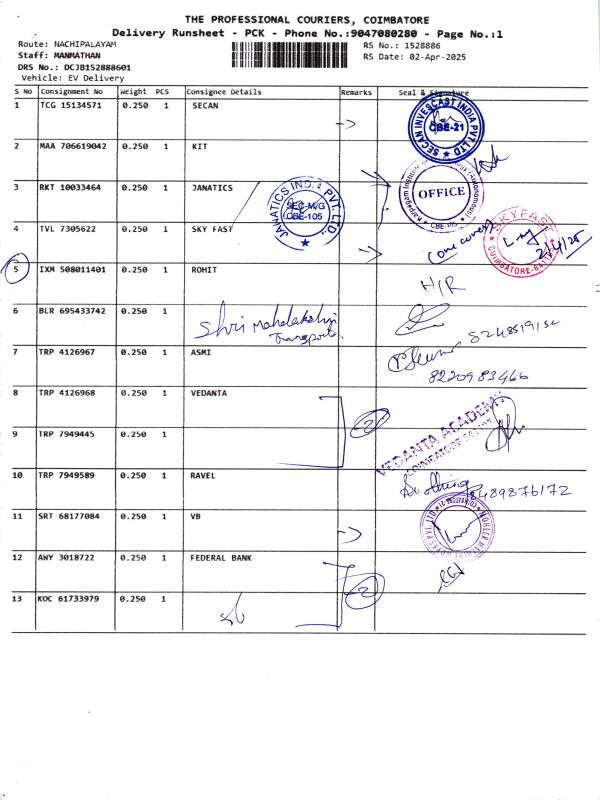 THE PROFESSIONAL COURIERS, COIMBATORE
Delivery Runsheet - PCK - Phone No.:9047080280 - Page No.:1
Route: NACHIPALAYAM
RS No.: 1528886
Staff: MANMATHAN
RS Date: 02-Apr-2025
DRS No.: DCJB152888601
Vehicle: EV Delivery
S No Consignment No Weight PCS Consignee Details Remarks Seal & Signature
1 TCG 15134571 0.250 1 SECAN
SECAN INVESCAST INDIA PVT.LTD CBE-21
2 MAA 706619042 0.250 1 KIT
OFFiCE
CBE-105
3 RKT 10033464 0.250 1 JANATICS
JANATICS IND. PVT. LTD.
CBE-105
4 TVL 7305622 0.250 1 SKY FAST
SKYFAST
2/4/25
5 IXM 508011401 0.250 1 ROHIT
H/R
6 BLR 695433742 0.250 1
Shri Mahalakshmi
Transports
7 TRP 4126967 0.250 1 ASMI
8220983466
8 TRP 4126968 0.250 1 VEDANTA
2
VEDANTA ACADEMY
9 TRP 7949445 0.250 1
10 TRP 7949589 0.250 1 RAVEL
11 SRT 68177084 0.250 1 VB
12 AWY 3018722 0.250 1 FEDERAL BANK
2
13 KOC 61733979 0.250 1